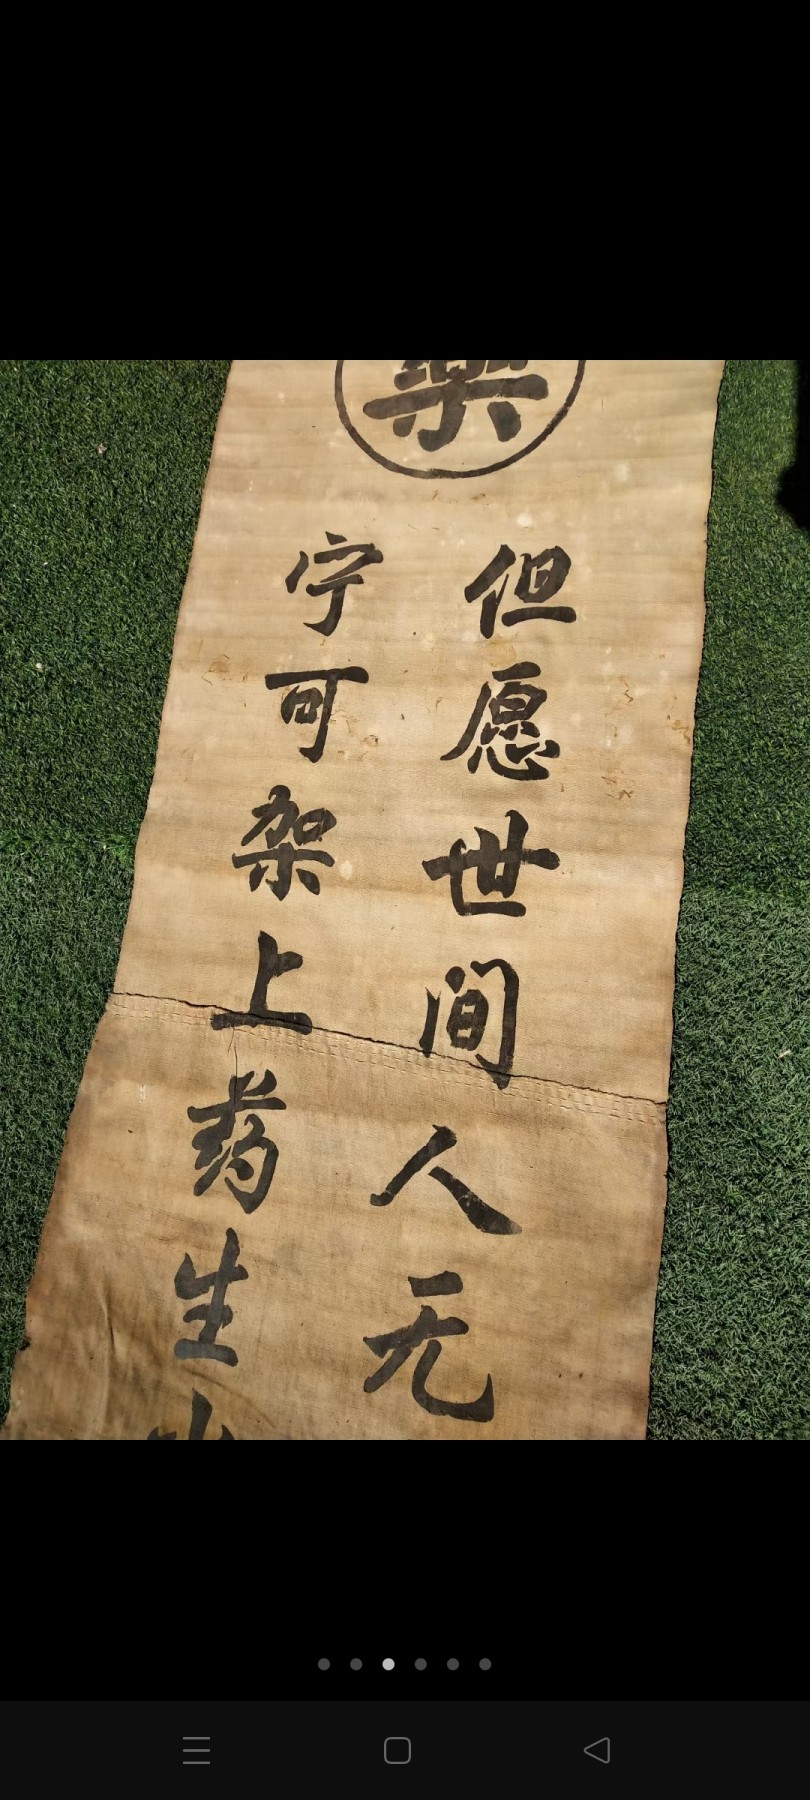 但愿世间人无
宁可架上药生